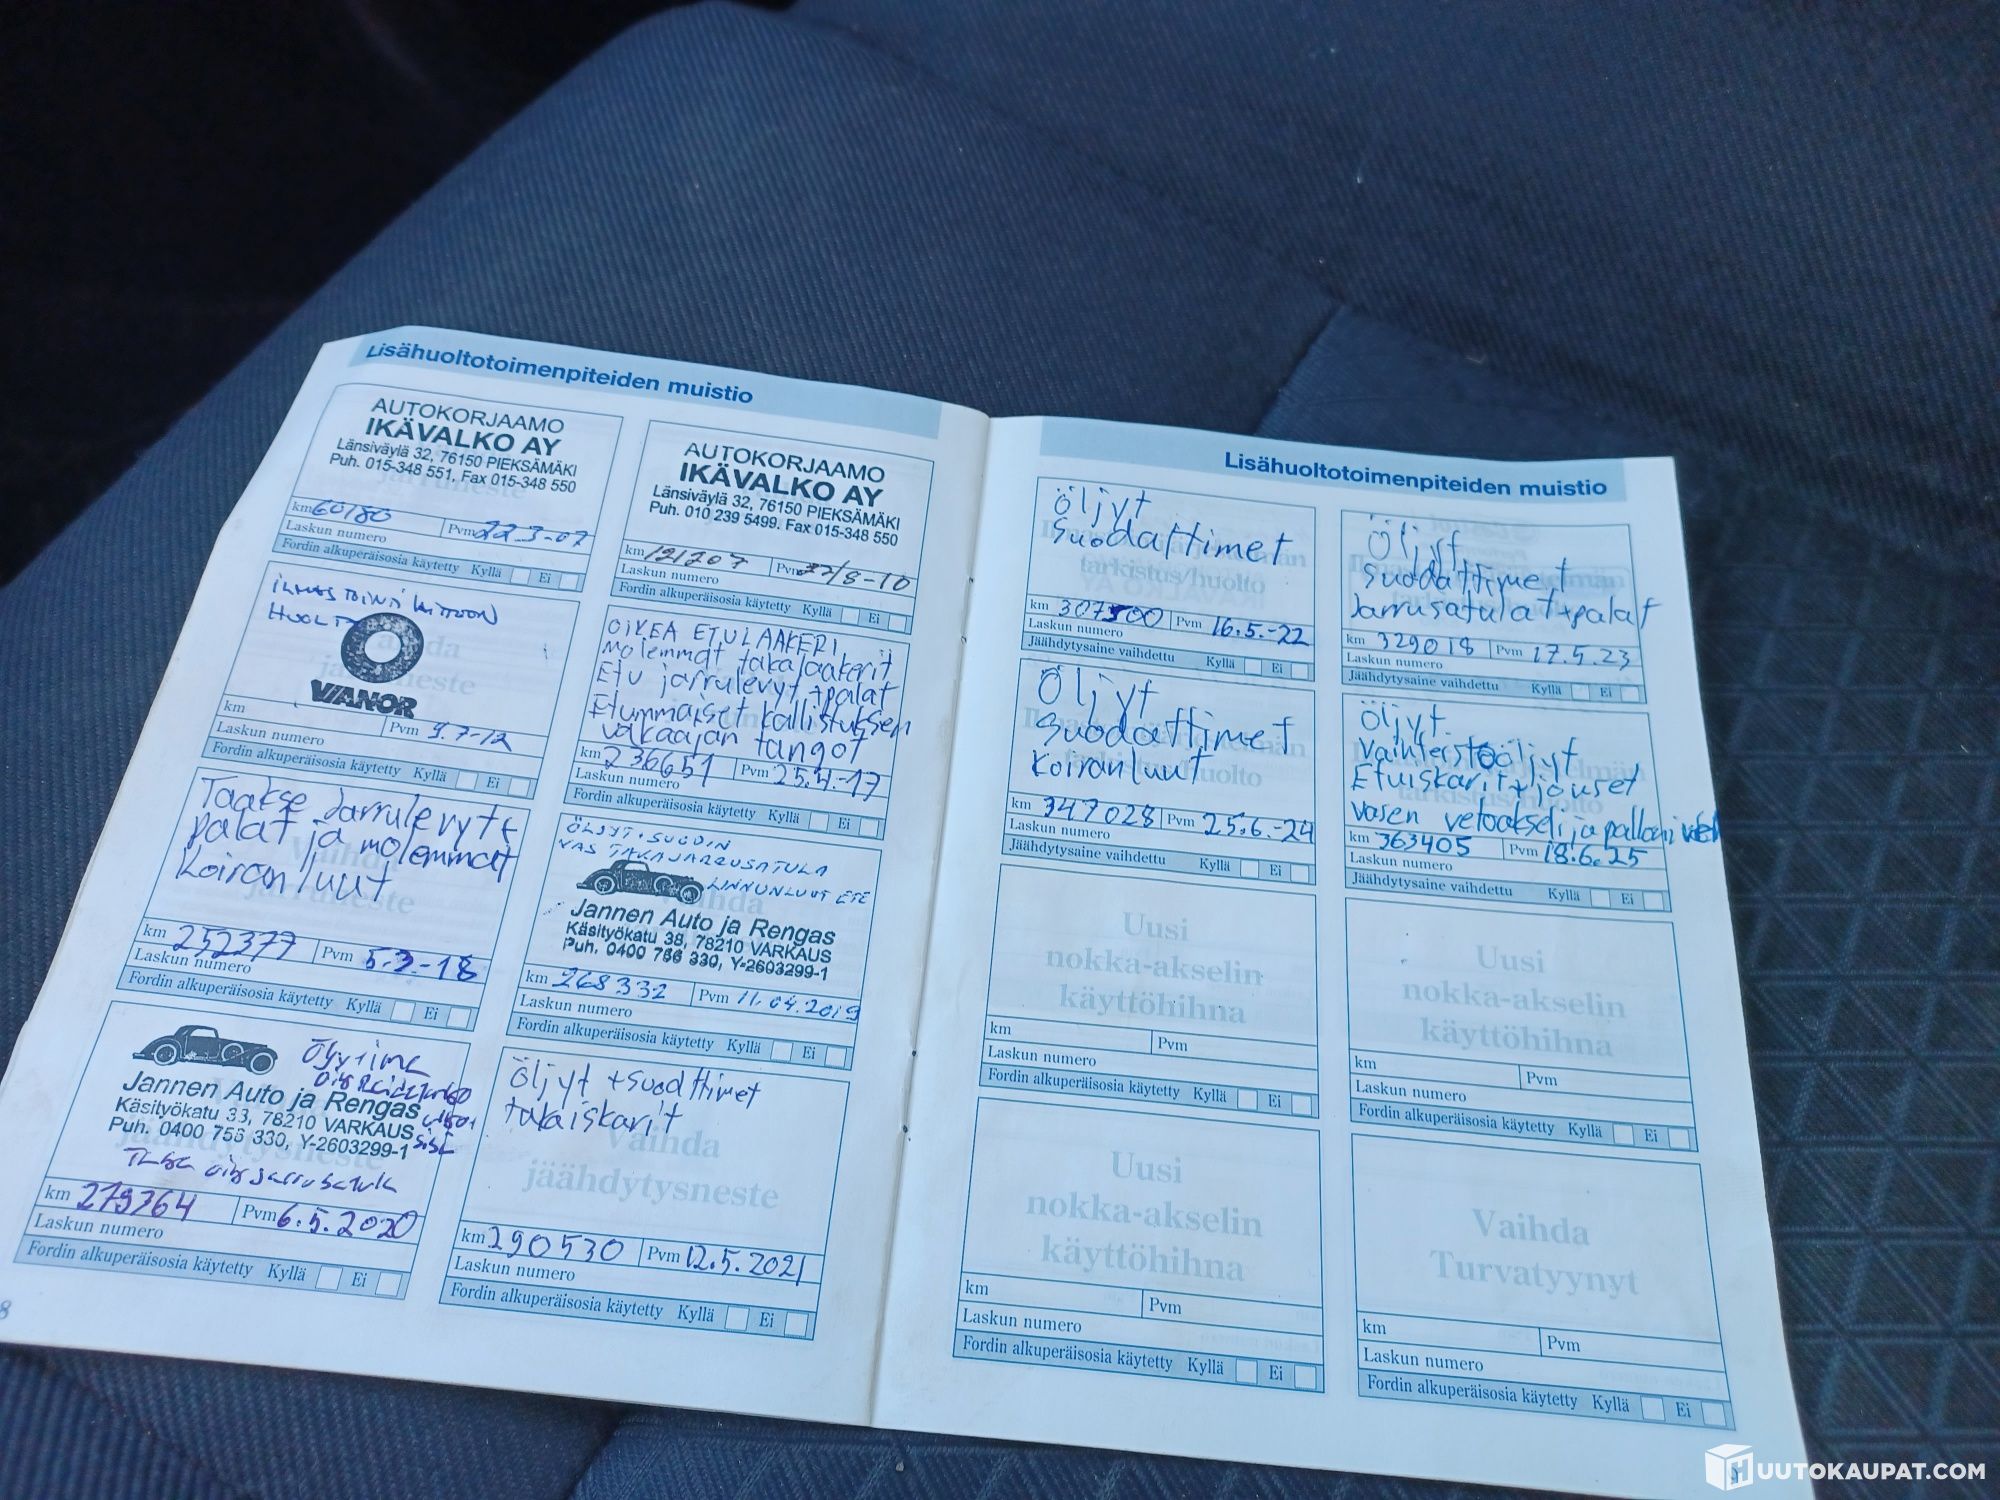 Lisähuoltotoimenpiteiden muistio
AUTOKORJAAMO
IKÄVALKO AY
Länsiväylä 32, 76150 PIEKSÄMÄKI
Puh. 015-348 551, Fax 015-348 550
km 60180 Pvm 22-3-07
Laskun numero
Fordin alkuperäisosia käytetty Kyllä Ei
AUTOKORJAAMO
IKÄVALKO AY
Länsiväylä 32, 76150 PIEKSÄMÄKI
Puh. 010 239 5499. Fax 015-348 550
km 121207 Pvm 27/8-10
Laskun numero
Fordin alkuperäisosia käytetty Kyllä Ei
ILMASTOINTI LAITTEEN
HUOLTO
VIANOR
km Pvm 9.7-12
Laskun numero
Fordin alkuperäisosia käytetty Kyllä Ei
OIKEA ETULAAKERI
molemmat takalaakerit
Etu jarrulevyt+palat
Etummaiset kallistuksen
vakaajan tangot
km 236651 Pvm 25.4.-17
Laskun numero
Fordin alkuperäisosia käytetty Kyllä Ei
Taakse Jarrulevyt+
palat ja molemmat
Koiranluut
km 252377 Pvm 5.3.-18
Laskun numero
Fordin alkuperäisosia käytetty Kyllä Ei
ÖLJYT+SUODIN
VAS TAKAJARRUSATULA
LINNUNLUUT ETE
Jannen Auto ja Rengas
Käsityökatu 38, 78210 VARKAUS
Puh. 0400 756 330, Y-2603299-1
km 268332 Pvm 11.04.2019
Laskun numero
Fordin alkuperäisosia käytetty Kyllä Ei
Jannen Auto ja Rengas
Käsityökatu 33, 78210 VARKAUS
Puh. 0400 756 330, Y-2603299-1
Taka oik jarrusatula
km 279364 Pvm 6.5.2020
Laskun numero
Fordin alkuperäisosia käytetty Kyllä Ei
Öljyt +suodattimet
takaiskarit
Vaihda
jäähdytysneste
km 290530 Pvm 12.5.2021
Laskun numero
Fordin alkuperäisosia käytetty Kyllä Ei
8
Lisähuoltotoimenpiteiden muistio
Öljyt
Suodattimet
tarkistus/huolto
km 307500 Pvm 16.5.-22
Laskun numero
Jäähdytysaine vaihdettu Kyllä Ei
Öljyt
Suodattimet
Jarrusatulat+palat
km 329018 Pvm 17.5.23
Laskun numero
Jäähdytysaine vaihdettu Kyllä Ei
Öljyt
Suodattimet
Koiranluut
km 347028 Pvm 25.6.-24
Laskun numero
Jäähdytysaine vaihdettu Kyllä Ei
Öljyt
Vaihteistoöljyt
Etuiskarit+jouset
vasen vetoakseli ja pallonivel
km 363405 Pvm 18.6.25
Laskun numero
Jäähdytysaine vaihdettu Kyllä Ei
Uusi
nokka-akselin
käyttöhihna
km Pvm
Laskun numero
Fordin alkuperäisosia käytetty Kyllä Ei
Uusi
nokka-akselin
käyttöhihna
km Pvm
Laskun numero
Fordin alkuperäisosia käytetty Kyllä Ei
Uusi
nokka-akselin
käyttöhihna
km Pvm
Laskun numero
Fordin alkuperäisosia käytetty Kyllä Ei
Vaihda
Turvatyynyt
km Pvm
Laskun numero
Fordin alkuperäisosia käytetty Kyllä Ei
HUUTOKAUPAT.COM